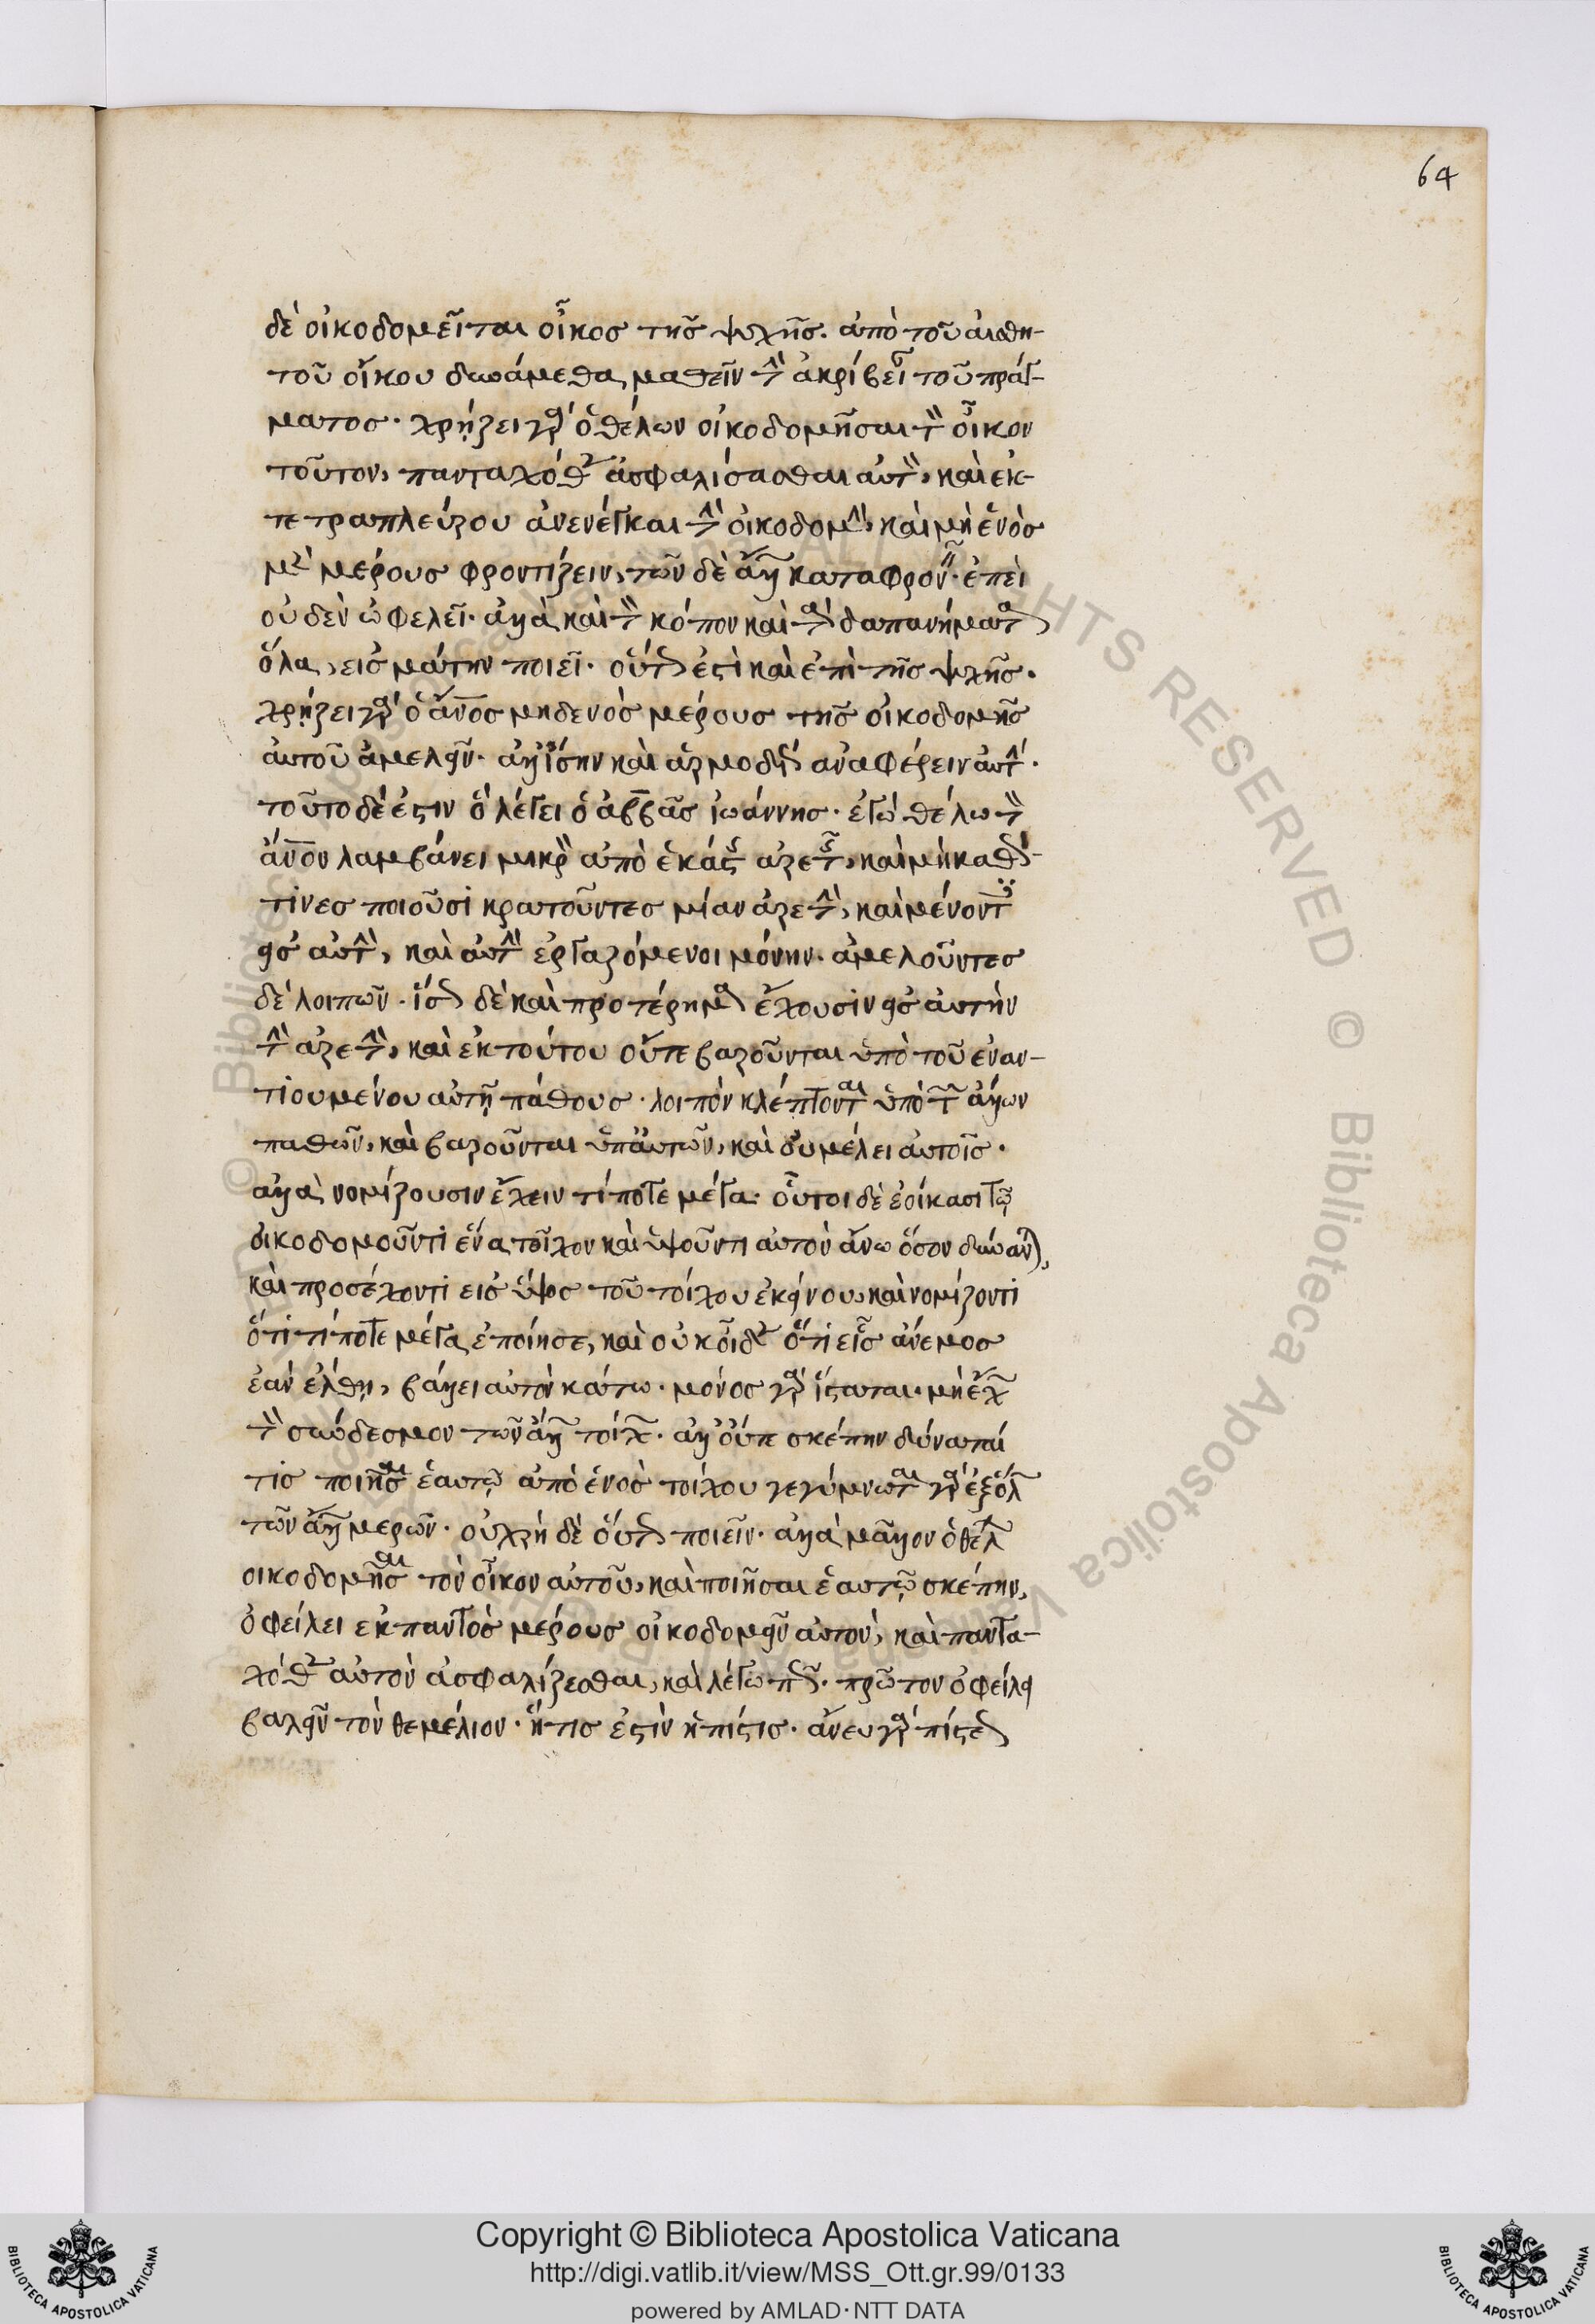 64
δὲ οἰκοδομεῖται οἶκος τῆς ψυχῆς. ἀπὸ τοῦ αἰσθη-
τοῦ οἴκου δυνάμεθα μαθεῖν τὴν ἀκρίβειαν τοῦ πράγ-
ματος. χρήζει γὰρ ὁ θέλων οἰκοδομῆσαι τὸν οἶκον
τοῦτον, πανταχόθεν ἀσφαλίσασθαι αὐτὸν, καὶ ἐκ
τετραπλεύρου ἀνενέγκαι τὴν οἰκοδομὴν, καὶ μὴ ἑνὸς
μὲν μέρους φροντίζειν, τῶν δὲ ἄλλων καταφρονεῖν. ἐπεὶ
οὐδὲν ὠφελεῖ. ἀλλὰ καὶ τὸν κόπον καὶ τὰ δαπανήματα
ὅλα, εἰς μάτην ποιεῖ. οὕτως ἐστὶ καὶ ἐπὶ τῆς ψυχῆς.
χρήζει γὰρ ὁ ἄνος μηδενὸς μέρους τῆς οἰκοδομῆς
αὐτοῦ ἀμελεῖν. ἀλλ' ἴσην καὶ ἁρμοδίως ἀναφέρειν αὐτήν.
τοῦτο δέ ἐστιν ὃ λέγει ὁ ἀββᾶς ἰωάννης. ἐγὼ θέλω τὸν
ἄνον λαμβάνει μικρὸν ἀπὸ ἑκάστης ἀρετῆς, καὶ μὴ καθώς
τινες ποιοῦσι κρατοῦντες μίαν ἀρετὴν, καὶ μένοντες
εἰς αὐτὴν, καὶ αὐτὴν ἐργαζόμενοι μόνην. ἀμελοῦντες
δὲ λοιπῶν. ἴσως δὲ καὶ προτέρημα ἔχουσιν εἰς αὐτὴν
τὴν ἀρετὴν, καὶ ἐκ τούτου οὔτε βαροῦνται ὑπὸ τοῦ ἐναν-
τιουμένου αὐτῇ πάθους. λοιπὸν κλέπτονται ὑπὸ τῶν ἄλλων
παθῶν, καὶ βαροῦνται ὑπ' αὐτῶν, καὶ οὐ μέλει αὐτοῖς.
ἀλλὰ νομίζουσιν ἔχειν τίποτε μέγα. οὗτοι δὲ ἐοίκασι τῷ
οἰκοδομοῦντι ἕνα τοῖχον καὶ ὑψοῦντι αὐτὸν ἄνω ὅσον δύναται,
καὶ προσέχοντι εἰς ὕψος τοῦ τοίχου ἐκείνου, καὶ νομίζοντι
ὅτι τίποτε μέγα ἐποίησε, καὶ οὐκ οἶδεν ὅτι εἷς ἄνεμος
ἐὰν ἔλθῃ, βάλλει αὐτὸν κάτω. μόνος γὰρ ἵσταται. μὴ ἔχων
τὸν σύνδεσμον τῶν ἄλλων τοίχων. ἀλλ' οὔτε σκέπην δύναται
τις ποιῆσαι ἑαυτῷ ἀπὸ ἑνὸς τοίχου γεγύμνωται γὰρ ἐξ ὅλων
τῶν ἄλλων μερῶν. οὐ χρὴ δὲ οὕτως ποιεῖν. ἀλλὰ μᾶλλον ὁ θέλων
οἰκοδομῆσαι τὸν οἶκον αὐτοῦ, καὶ ποιῆσαι ἑαυτῷ σκέπην,
ὀφείλει ἐκ παντὸς μέρους οἰκοδομεῖν αὐτόν, καὶ παντα-
χόθεν αὐτὸν ἀσφαλίζεσθαι, καὶ λέγω πῶς. πρῶτον ὀφείλει
βαλεῖν τὸν θεμέλιον. ἥτις ἐστὶν ἡ πίστις. ἄνευ γὰρ πίστεως
Copyright © Biblioteca Apostolica Vaticana
http://digi.vatlib.it/view/MSS_Ott.gr.99/0133
powered by AMLAD·NTT DATA